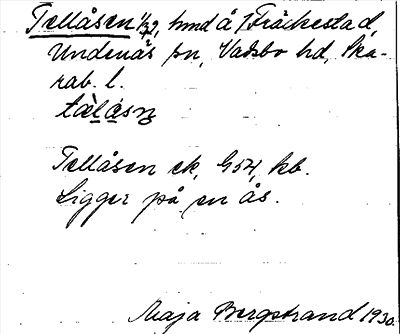 Tellåsen 1/32, hmd å 1 Fräckestad,
Undenäs sn, Vadsbo hd, Ska-
rab. l.
Tellåsen ek, G54, kb.
Ligger på en ås.
Maja Bergstrand 1930.